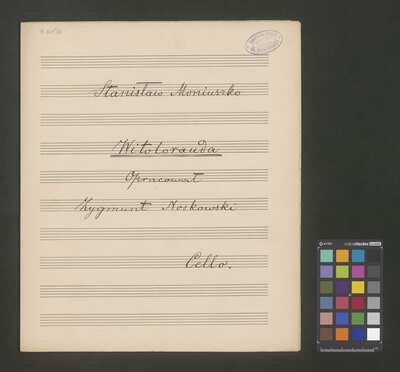 Stanisław Moniuszko
Witolorauda
Opracował
Zygmunt Noskowski
Cello.